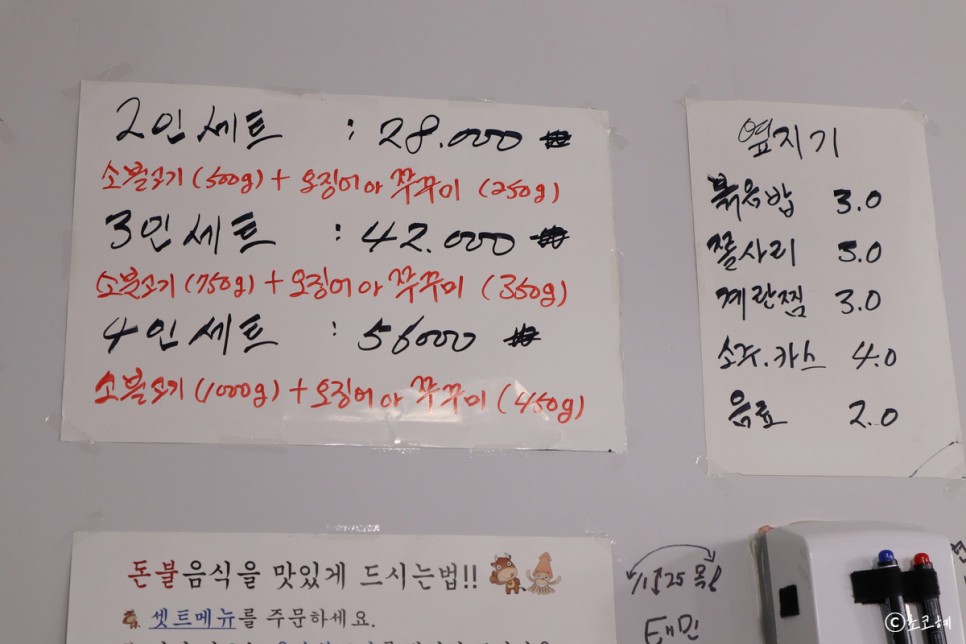 2인세트 : 28.000 ₩
소불고기(500g) + 오징어 아 쭈꾸미 (250g)
3인세트 : 42.000 ₩
소불고기(750g) + 오징어 아 쭈꾸미 (350g)
4인세트 : 56000 ₩
소불고기(1000g) + 오징어 아 쭈꾸미 (450g)
옆지기
볶음밥 3.0
쫄사리 5.0
계란찜 3.0
소주.카스 4.0
음료 2.0
돈불음식을 맛있게 드시는법!!
셋트메뉴를 주문하세요.
25 목
태민